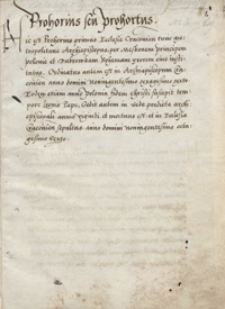 Prohorius seu prohortus.
ic est Prohorius primus Ecclesie Cracovien tunc me-
tropolitane Archiepiscopus per Mesconem principem
polonie et Dambrowkam Xpianam uxorem eius insti-
tutus. Ordinatus autem est in Archiepiscopum Cra-
covien anno domini Nonningentesimo sexagesimo sexto
Eodem etiam anno Polonia fidem Christi suscepit tem-
pore Papae, sedit autem in sede predicta archi-
episcopali annis viginti et mortuus est et in Ecclesia
Cracovien sepultus anno domini Nonningentesimo octu-
agesimo sexto.